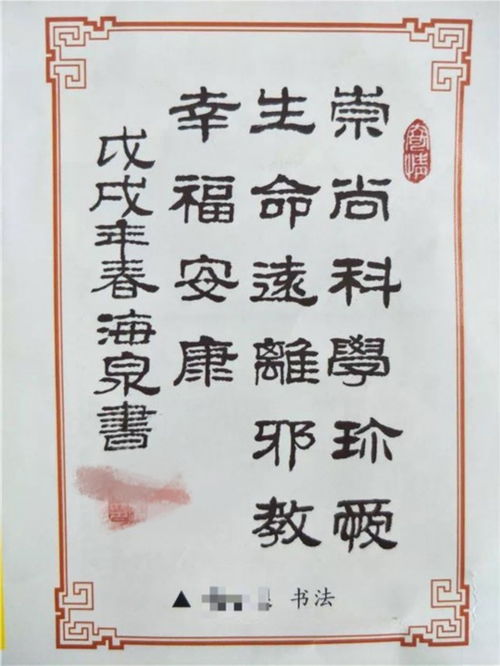 崇尚科學珎愛
生命遠離邪教
幸福安康
戊戌年春海泉書
▲ 书法